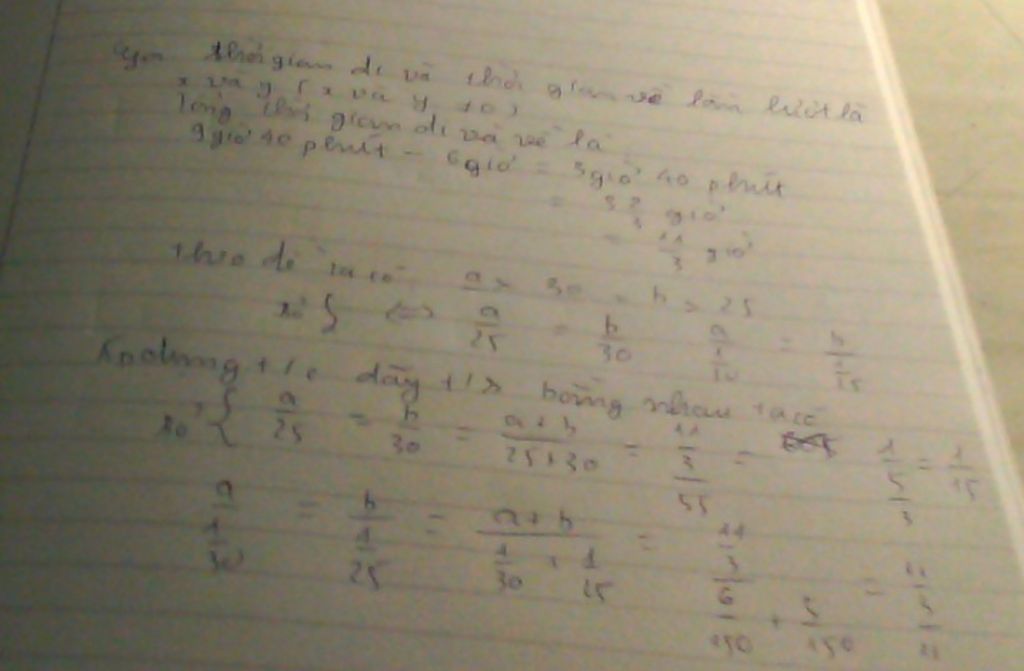 Gọi thời gian đi và thời gian về lần lượt là
x và y ( x và y ≠0)
Tổng thời gian đi và về là
9giờ 40 phút - 6giờ = 3giờ 40 phút
= 3 2/3 giờ
= 11/3 giờ
theo đề ta có a x 30 = b x 25
} <=> a/25 = b/30 a/(1/30) = b/(1/25)
Áp dụng t/c dãy t/s bằng nhau ta có
{ a/25 = b/30 = (a+b)/(25+30) = (11/3)/55 = (1/5)/3 = 1/15
a/(1/30) = b/(1/25) = (a+b)/(1/30 + 1/25) = (11/3)/(6/150 + 5/150) = 11/3